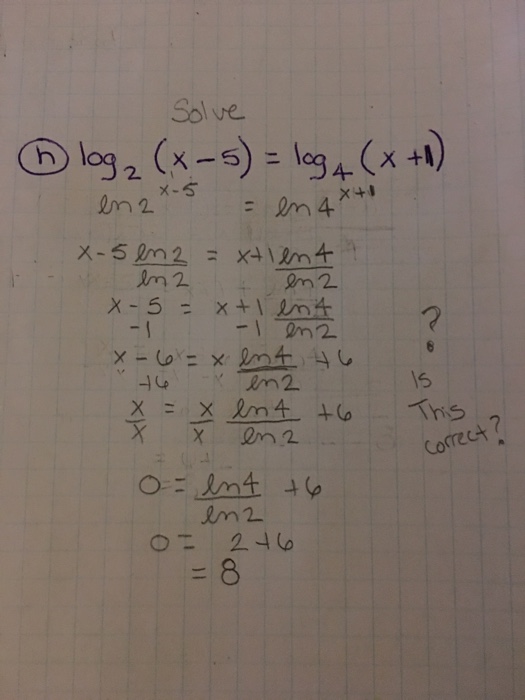 Solve
(h) log₂ (x-5) = log₄ (x+1)
ln 2^(x-5) = ln 4^(x+1)
x-5 ln2/ln2 = x+1 ln4/ln2
x - 5 = x + 1 ln4/ln2
-1 -1
x - 6 = x ln4/ln2 +6
+6
x/x = x/x ln4/ln2 +6
0 = ln4/ln2 +6
0 = 2+6
= 8
?
Is
This
correct?